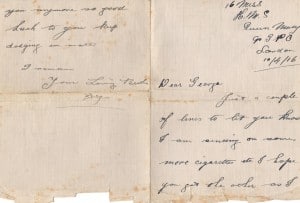 you anymore so good
luck to you keep
dodging on mate
I remain
Your Loving
16
Queen
London
10/4/16
Dear George
Just a couple
of lines to let you know
I am sending on some
more cigarettes etc I hope
you got the other as I